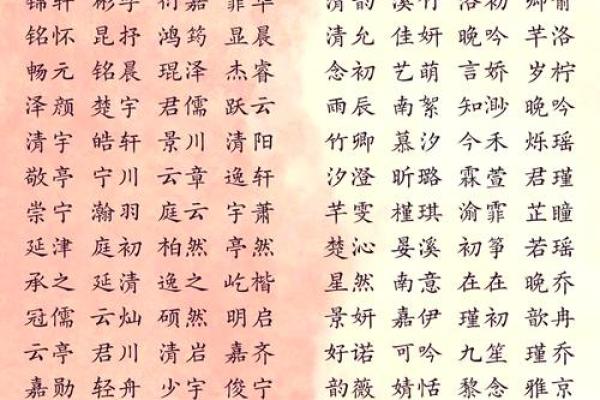 锦轩 衍嘉 清韵 溪竹 洛初
铭怀 昆抒 鸿筠 显晨 清允 佳妍 晚吟 芊洛
畅元 铭晨 琨泽 杰睿 念初 艺萌 言娇 岁柠
泽颜 楚宇 君儒 跃云 雨辰 南絮 知渺 晚吟
清宇 皓轩 景川 清阳 竹卿 慕汐 今禾 烁瑶
敬亭 宁川 云章 逸轩 汐澄 昕璐 霖萱 君瑾
崇宁 瀚羽 庭云 宇萧 芊雯 槿琪 渝霏 芷瞳
延津 庭初 柏然 亭然 楚沁 晏溪 初筝 若瑶
承之 延清 逸之 屹楷 星然 南意 在在 晚乔
冠儒 云灿 硕然 明启 景妍 嘉伊 瑾初 歆冉
云亭 君川 清岩 嘉齐 好诺 可吟 九笙 瑾乔
嘉勋 轻舟 少宇 俊宁 韵薇 婧恬 黎念 雅京